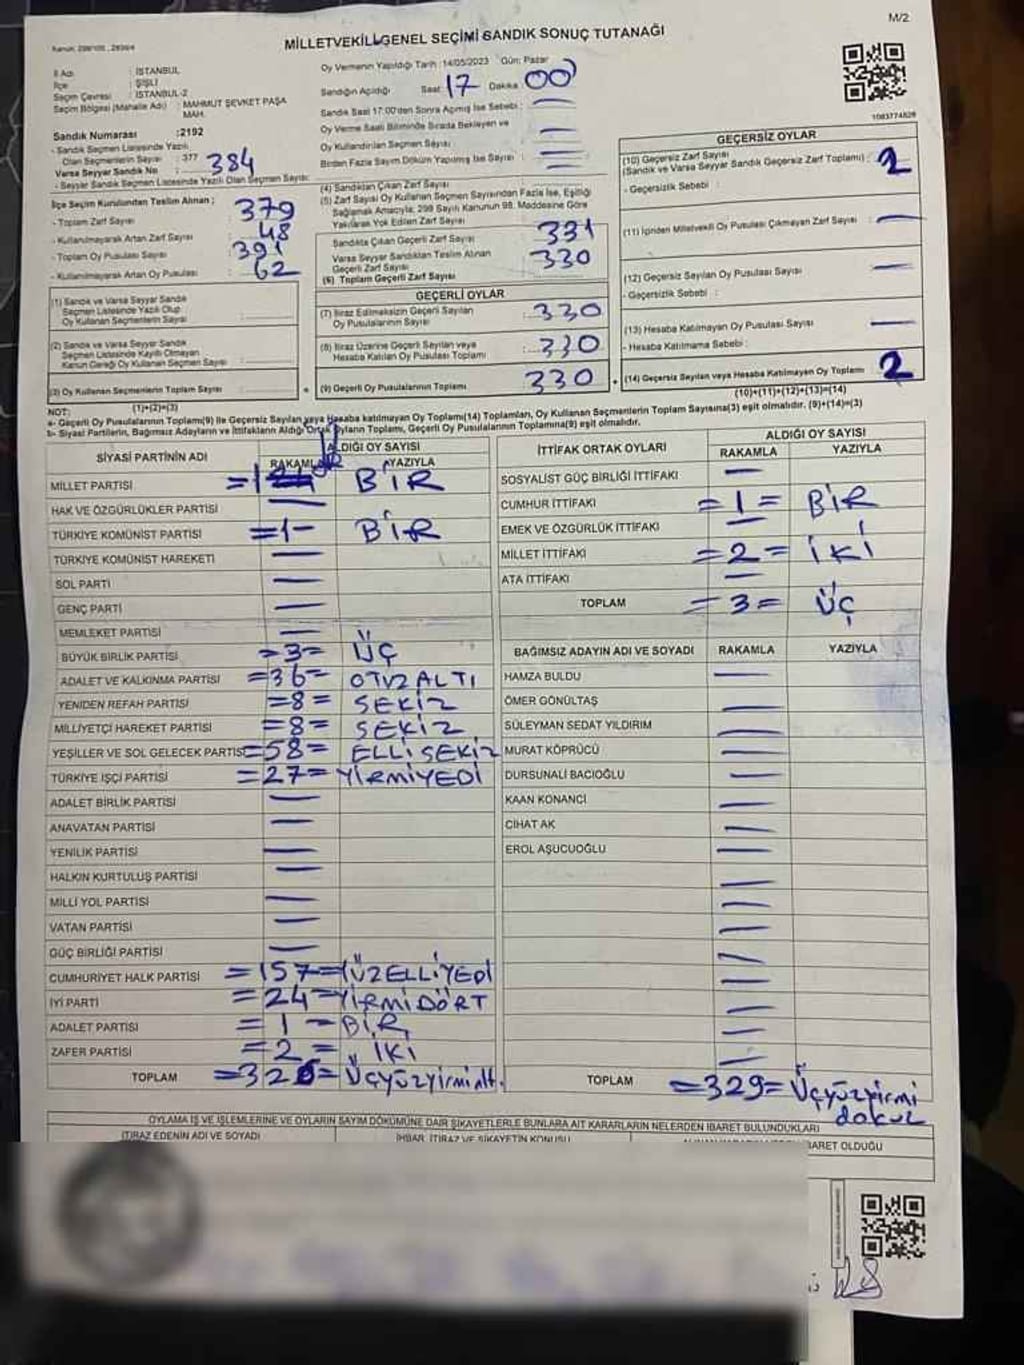 M/2
MİLLETVEKİLİ GENEL SEÇİMİ SANDIK SONUÇ TUTANAĞI
İl Adı : İSTANBUL
İlçe : ŞİŞLİ
Seçim Çevresi : İSTANBUL-2
Seçim Bölgesi (Mahalle Adı) : MAHMUT ŞEVKET PAŞA MAH.
Sandık Numarası : 2192
- Sandık Seçmen Listesinde Yazılı
Olan Seçmenlerin Sayısı : 377
Varsa Seyyar Sandık No 384
- Seyyar Sandık Seçmen Listesinde Yazılı Olan Seçmen Sayısı:
İlçe Seçim Kurulundan Teslim Alınan ;
- Toplam Zarf Sayısı : 379
- Kullanılmayarak Artan Zarf Sayısı : 48
- Toplam Oy Pusulası Sayısı : 391
- Kullanılmayarak Artan Oy Pusulası : 62
(1) Sandık ve Varsa Seyyar Sandık
Seçmen Listesinde Yazılı Olup
Oy Kullanan Seçmenlerin Sayısı :
(2) Sandık ve Varsa Seyyar Sandık
Seçmen Listesinde Kayıtlı Olmayan
Kanun Gereği Oy Kullanan Seçmen Sayısı :
(3) Oy Kullanan Seçmenlerin Toplam Sayısı :
(1)+(2)=(3)
Oy Vermenin Yapıldığı Tarih : 14/05/2023 Gün: Pazar
Sandığın Açıldığı Saat: 17 Dakika 00
Sandık Saat 17:00'den Sonra Açılmış İse Sebebi : —
Oy Verme Saati Bitiminde Sırada Bekleyen ve
Oy Kullandırılan Seçmen Sayısı : —
Birden Fazla Sayım Döküm Yapılmış İse Sayısı : —
(4) Sandıktan Çıkan Zarf Sayısı :
(5) Zarf Sayısı Oy Kullanan Seçmen Sayısından Fazla İse, Eşitliği
Sağlamak Amacıyla; 298 Sayılı Kanunun 98. Maddesine Göre
Yakılarak Yok Edilen Zarf Sayısı :
Sandıkta Çıkan Geçerli Zarf Sayısı : 331
Varsa Seyyar Sandıktan Teslim Alınan
Geçerli Zarf Sayısı : 330
(6) Toplam Geçerli Zarf Sayısı
GEÇERLİ OYLAR
(7) İtiraz Edilmeksizin Geçerli Sayılan
Oy Pusulalarının Sayısı : 330
(8) İtiraz Üzerine Geçerli Sayılan veya
Hesaba Katılan Oy Pusulası Toplamı : 330
(9) Geçerli Oy Pusulalarının Toplamı : 330
1083774828
GEÇERSİZ OYLAR
(10) Geçersiz Zarf Sayısı
(Sandık ve Varsa Seyyar Sandık Geçersiz Zarf Toplamı) : 2
- Geçersizlik Sebebi :
(11) İçinden Milletvekili Oy Pusulası Çıkmayan Zarf Sayısı : —
(12) Geçersiz Sayılan Oy Pusulası Sayısı : —
- Geçersizlik Sebebi :
(13) Hesaba Katılmayan Oy Pusulası Sayısı : —
- Hesaba Katılmama Sebebi :
(14) Geçersiz Sayılan veya Hesaba Katılmayan Oy Toplamı : 2
(10)+(11)+(12)+(13)=(14)
NOT:
a- Geçerli Oy Pusulalarının Toplamı(9) ile Geçersiz Sayılan veya Hesaba katılmayan Oy Toplamı(14) Toplamları, Oy Kullanan Seçmenlerin Toplam Sayısına(3) eşit olmalıdır. (9)+(14)=(3)
b- Siyasi Partilerin, Bağımsız Adayların ve İttifakların Aldığı Ortak Oyların Toplamı, Geçerli Oy Pusulalarının Toplamına(9) eşit olmalıdır.
SİYASİ PARTİNİN ADI ALDIĞI OY SAYISI
RAKAMLA YAZIYLA
MİLLET PARTİSİ =1 BİR
HAK VE ÖZGÜRLÜKLER PARTİSİ —
TÜRKİYE KOMÜNİST PARTİSİ =1- BİR
TÜRKİYE KOMÜNİST HAREKETİ —
SOL PARTİ —
GENÇ PARTİ —
MEMLEKET PARTİSİ —
BÜYÜK BİRLİK PARTİSİ =3= ÜÇ
ADALET VE KALKINMA PARTİSİ =36= OTUZ ALTI
YENİDEN REFAH PARTİSİ =8= SEKİZ
MİLLİYETÇİ HAREKET PARTİSİ =8= SEKİZ
YEŞİLLER VE SOL GELECEK PARTİSİ =58= ELLİ SEKİZ
TÜRKİYE İŞÇİ PARTİSİ =27= YİRMİYEDİ
ADALET BİRLİK PARTİSİ —
ANAVATAN PARTİSİ —
YENİLİK PARTİSİ —
HALKIN KURTULUŞ PARTİSİ —
MİLLİ YOL PARTİSİ —
VATAN PARTİSİ —
GÜÇ BİRLİĞİ PARTİSİ —
CUMHURİYET HALK PARTİSİ =157= YÜZELLİYEDİ
İYİ PARTİ =24= YİRMİDÖRT
ADALET PARTİSİ =1- BİR
ZAFER PARTİSİ =2= İKİ
TOPLAM =326= Üçyüzyirmialt.
İTTİFAK ORTAK OYLARI ALDIĞI OY SAYISI
RAKAMLA YAZIYLA
SOSYALİST GÜÇ BİRLİĞİ İTTİFAKI —
CUMHUR İTTİFAKI =1= BİR
EMEK VE ÖZGÜRLÜK İTTİFAKI —
MİLLET İTTİFAKI =2= İKİ
ATA İTTİFAKI —
TOPLAM =3= ÜÇ
BAĞIMSIZ ADAYIN ADI VE SOYADI RAKAMLA YAZIYLA
HAMZA BULDU —
ÖMER GÖNÜLTAŞ —
SÜLEYMAN SEDAT YILDIRIM —
MURAT KÖPRÜCÜ —
DURSUNALİ BACIOĞLU —
KAAN KONANCİ —
CİHAT AK —
EROL AŞUCUOĞLU —
TOPLAM =329= Üçyüzyirmi
dokuz
OYLAMA İŞ VE İŞLEMLERİNE VE OYLARIN SAYIM DÖKÜMÜNE DAİR ŞİKAYETLERLE BUNLARA AİT KARARLARIN NELERDEN İBARET BULUNDUKLARI
İTİRAZ EDENİN ADI VE SOYADI İHBAR, İTİRAZ VE ŞİKAYETİN KONUSU İBARET OLDUĞU